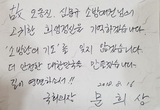 故 오승진, 심문규 소방대원님의
고귀한 희생정신을 기억하겠습니다.
'소방관의 기도'를 잊지 않겠습니다.
더 안전한 대한민국을 만들겠습니다.
깊이 애도하며...
2018. 8. 16
국회의장 문희상